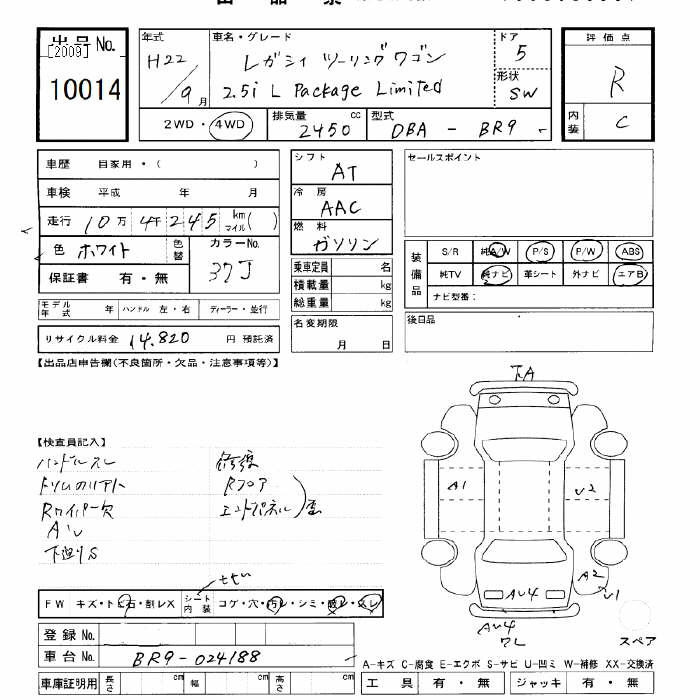 出品No.
[2009]
10014
年式
H22/9月
車名・グレード
レガシィ ツーリングワゴン
2.5i L Package Limited
ドア
5
形状
SW
2WD・4WD
排気量
2450 cc
型式
DBA - BR9 -
評価点
R
内装
C
車歴 自家用・( )
車検 平成 年 月
走行 10万 4千 245 km マイル( )
色 ホワイト
色替
カラーNo.
37J
保証書 有・無
モデル年式 年
ハンドル 左・右
ディーラー・並行
リサイクル料金 14.820 円 預託済
シフト
AT
冷房
AAC
燃料
ガソリン
乗車定員 名
積載量 kg
総重量 kg
名変期限
月 日
セールスポイント
装備品
S/R 純A/W P/S P/W ABS
純TV 純ナビ 革シート 外ナビ エアB
ナビ型番:
後日品
【出品店申告欄(不良箇所・欠品・注意事項等)】
【検査員記入】
ハンドルスレ
修復
Rフロア
Rワイパー欠
エンドパネル
歪
下廻りS
下A
A1
U2
A2
U1
AU4
AU4
ワレ
スペア
FW キズ・トビ石・割レX
シート内装
コゲ・穴・汚レ・シミ・破レ・スレ
登録No.
車台No. BR9-024188
車庫証明用 長さ cm 幅 cm 高さ cm
A-キズ C-腐食 E-エクボ S-サビ U-凹ミ W-補修 XX-交換済
工具 有・無 ジャッキ 有・無